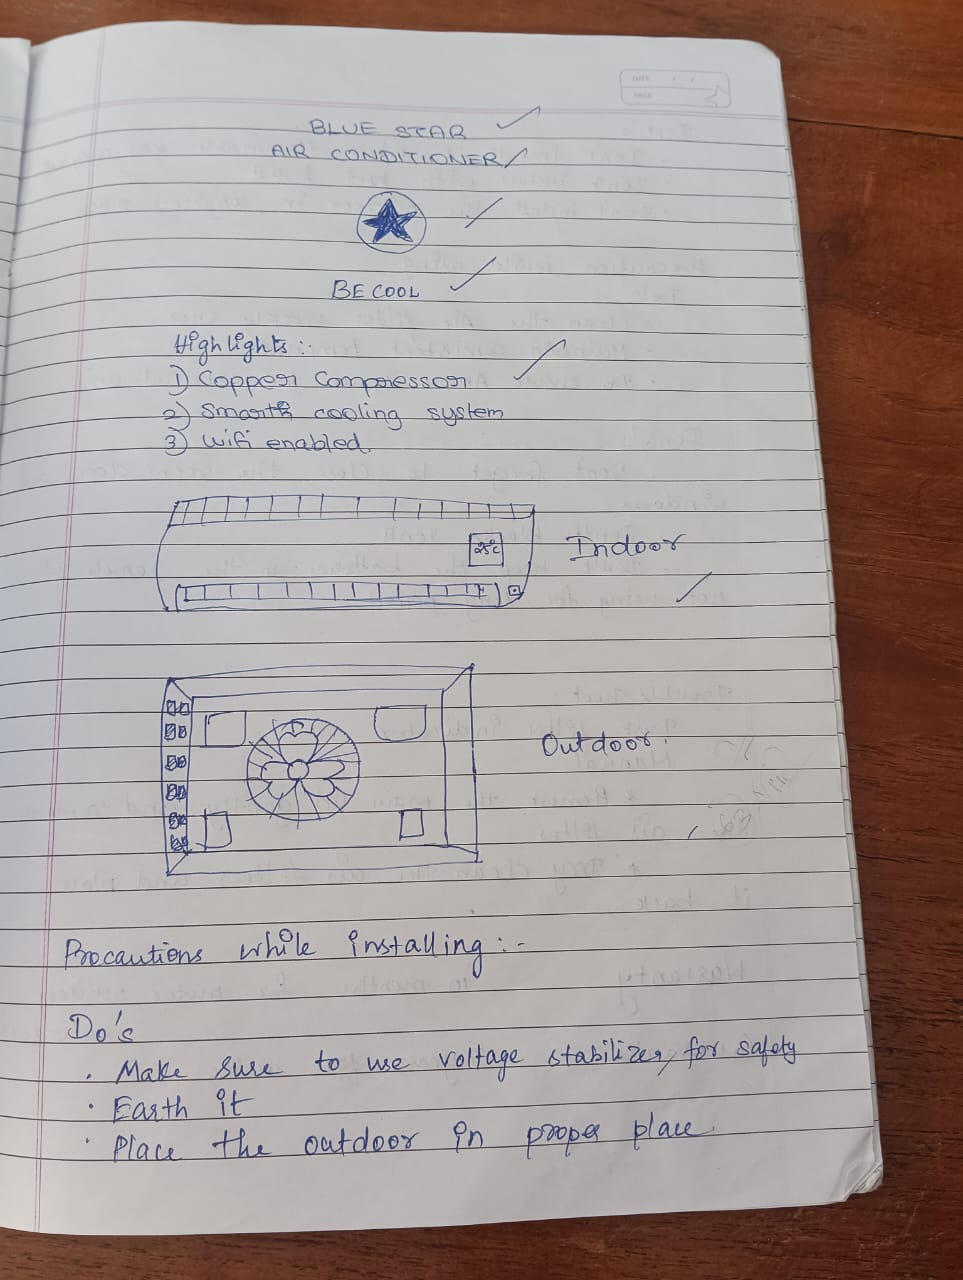 BLUE STAR
AIR CONDITIONER
BE COOL
Highlights :-
1) Copper Compressor
2) Smart cooling system
3) Wifi enabled.
25°C
Indoor
Outdoor.
Precautions while installing :-
Do's
· Make sure to use voltage stabilizer, for safety
· Earth it
· Place the outdoor in proper place.